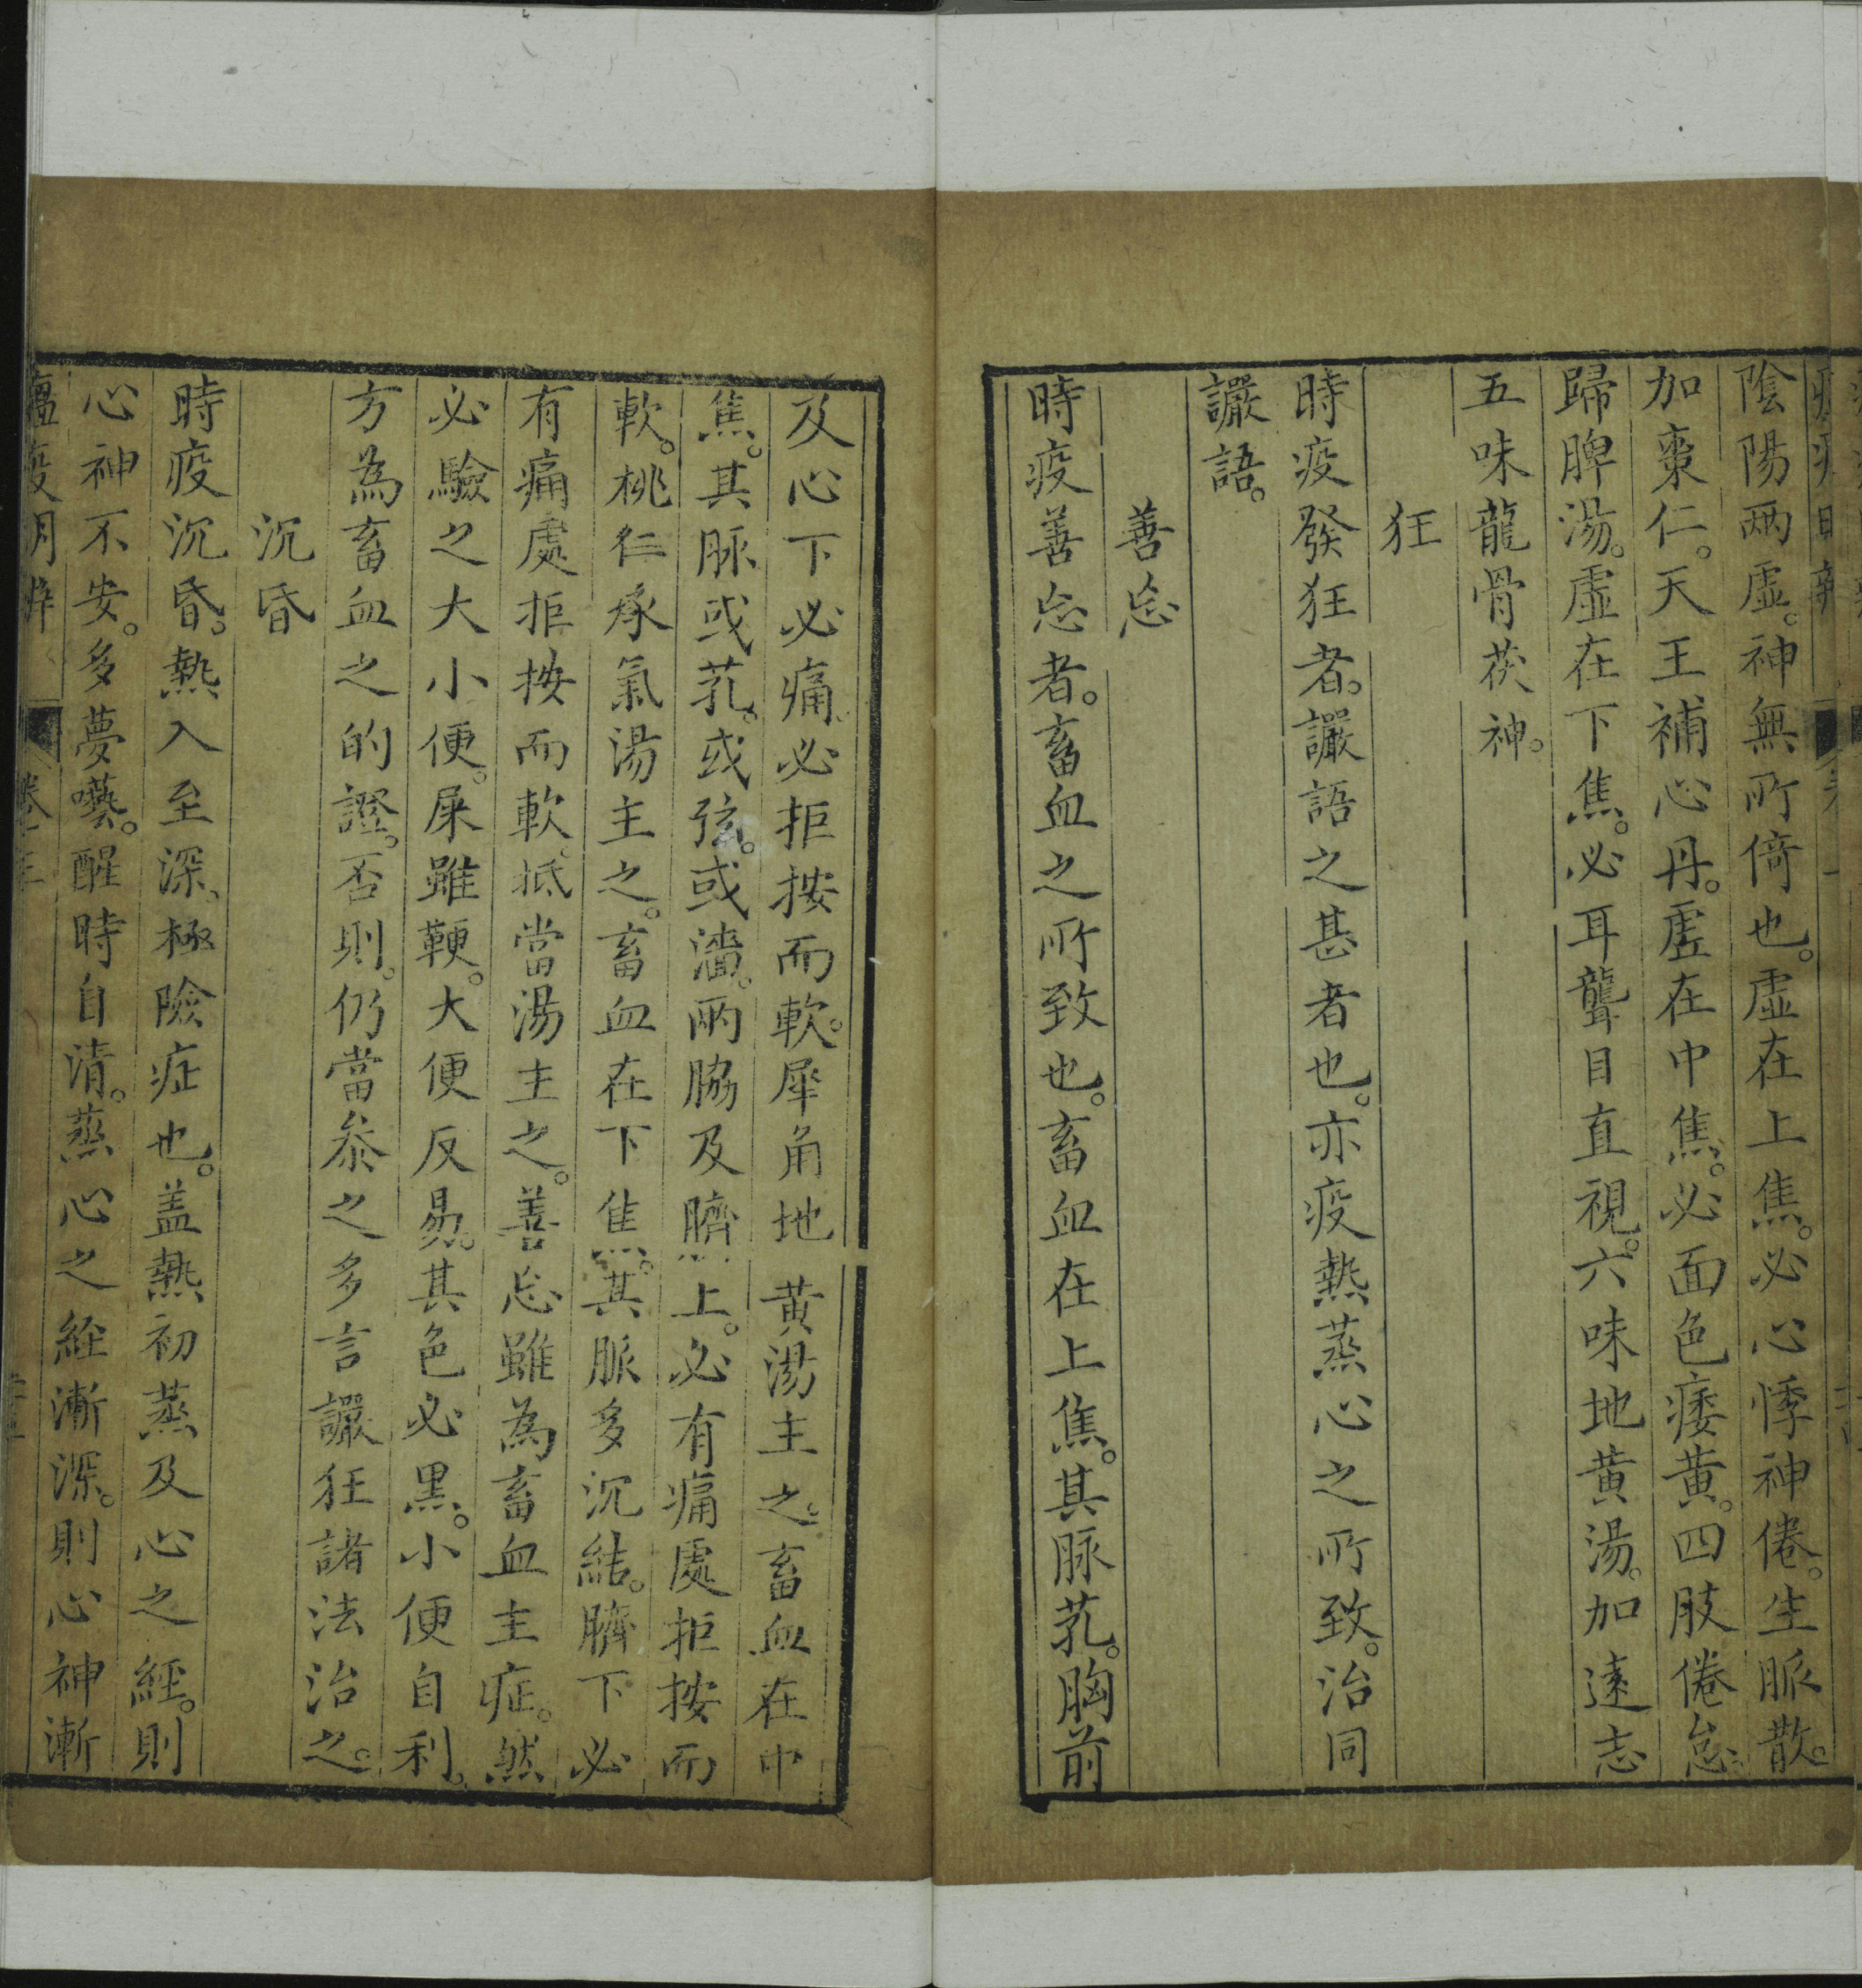 陰陽兩虛。神無所倚也。虛在上焦。必心悸神倦。生脈散。
加棗仁。天王補心丹。虛在中焦。必面色痿黃。四肢倦怠。
歸脾湯。虛在下焦。必耳聾目直視。六味地黃湯。加遠志
五味龍骨茯神。
狂
時疫發狂者。讝語之甚者也。亦疫熱蒸心之所致。治同
讝語。
善忘
時疫善忘者。畜血之所致也。畜血在上焦。其脉芤。胸前
及心下必痛。必拒按而軟。犀角地黃湯主之。畜血在中
焦。其脈或芤。或弦。或濇。兩脇及臍上。必有痛處拒按而
軟。桃仁承氣湯主之。畜血在下焦。其脈多沉結。臍下必
有痛處拒按而軟。抵當湯主之。善忘雖為畜血主症。然
必驗之大小便。屎雖鞕。大便反易。其色必黑。小便自利。
方為畜血之的證。否則。仍當叅之多言讝狂諸法治之。
沉昏
時疫沉昏。熱入至深、極險症也。盖熱初蒸及心之經。則
心神不安。多夢囈。醒時自清。蒸心之経漸深。則心神漸
瘟疫明辨 卷